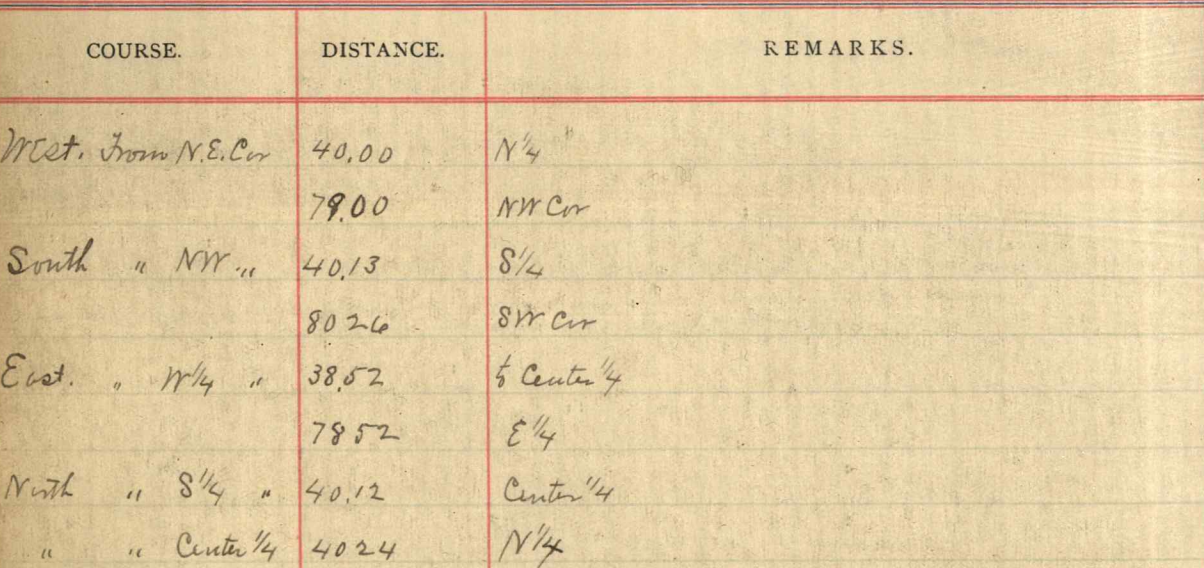 COURSE. DISTANCE. REMARKS.
West. From N.E. Cor 40.00 N 1/4
79.00 NW Cor
South " NW " 40.13 S 1/4
8026 SW Cor
East. " W 1/4 " 38.52 to Center 1/4
7852 E 1/4
North " S 1/4 " 40.12 Center 1/4
" " Center 1/4 4024 N 1/4